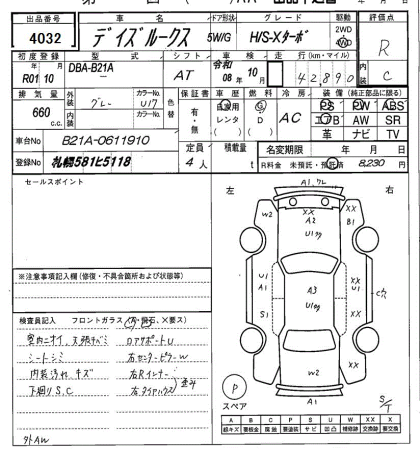 出品番号 車名 ドア形状 グレード 駆動 評価点
4032 デイズルークス 5W/G H/S-Xターボ 2WD 4WD R
初度登録 型式 シフト 車検 走行(km・マイル) 内装
R01年10月 DBA-B21A AT 令和08年10月 42,890 C
排気量 外装 カラーNo. 色替 保証書 車歴 燃料 冷房 装備(純正部品に限る)
660 c.c. グレー U17 有・無 自家用 レンタ G D AC PS PW ABS
内装 カラーNo. エアB AW SR
革 ナビ TV
車台No B21A-0611910 定員 積載量 名変期限 年 月 日
登録No 札幌581ヒ5118 4人 t R料金 未預託・預託済 8,230円
セールスポイント
左 右
A1.ワレ
W2 XX XX B1
A2
U1
※注意事項記入欄(修復・不具合箇所および状態等)
U1 A1 A3 XX U1
S1 U1 XX
検査員記入 フロントガラス(A・飛石、×要ス)
室内ニオイ、天張キバミ ロアサポートU
シートシミ 右センターピラーW
内装汚れ キズ 右Rインナー
下廻りS.C 右タイヤハウス 歪み
W2 XX
P
スペア A1 S/T
外AW
A B C P S U W XX X
線キズ 要板金 腐蝕 要塗装 サビ 凹凸 補修跡 交換跡 要交換